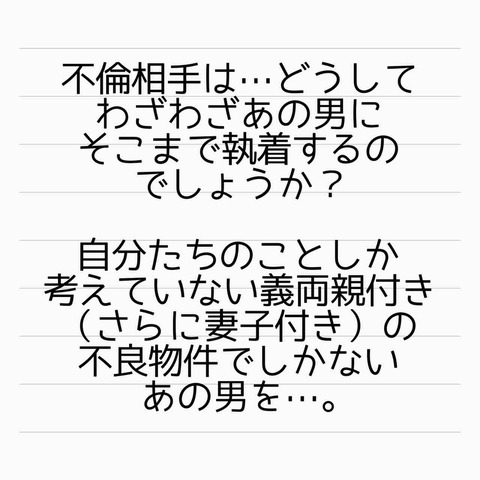 不倫相手は…どうして
わざわざあの男に
そこまで執着するの
でしょうか？
自分たちのことしか
考えていない義両親付き
（さらに妻子付き）の
不良物件でしかない
あの男を…。